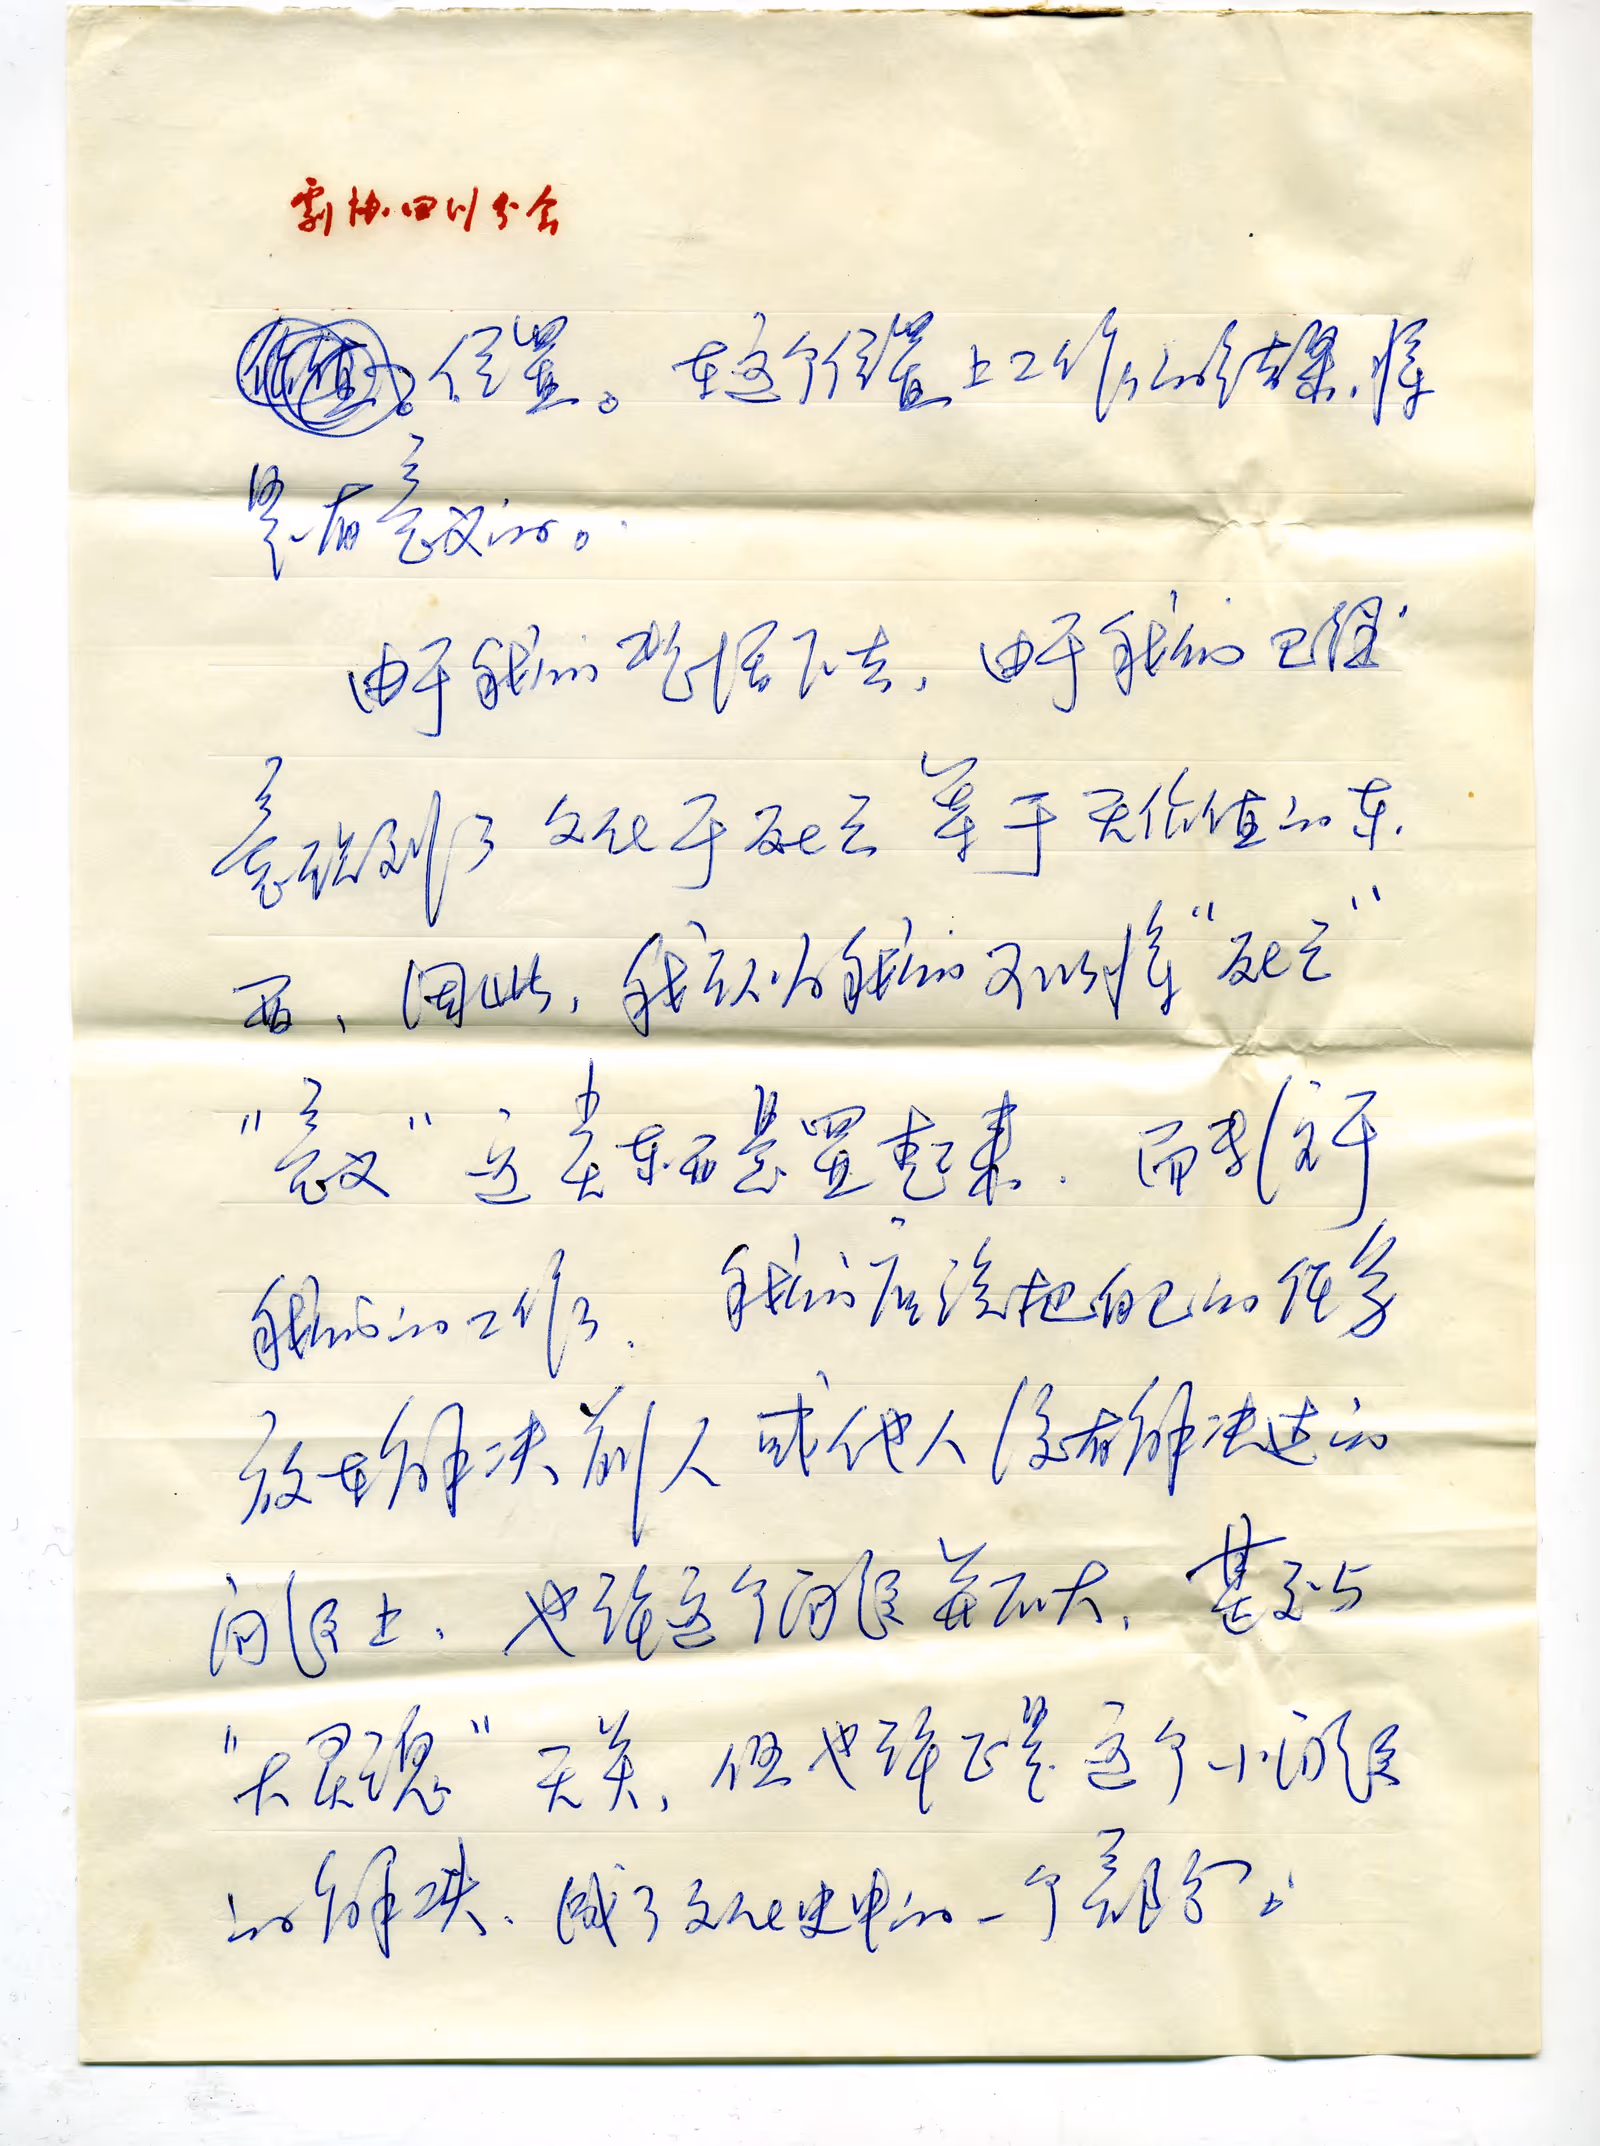 剧协四川分会
位置。在这个位置上工作的结果,将
是有意义的。
由于我们要活下去,由于我们已经
意识到了文化于死亡等于无价值的东
西,因此,我认为我们可以将“死亡”
“意义”这类东西悬置起来.而专注于
我们的工作了.我们应该把自己的任务
放在解决前人或他人没有解决过的
问题上,也许这个问题并不大,甚至与
“大灵魂”无关,但也许正是这个小问题
的解决,成了文化史中的一个部分。